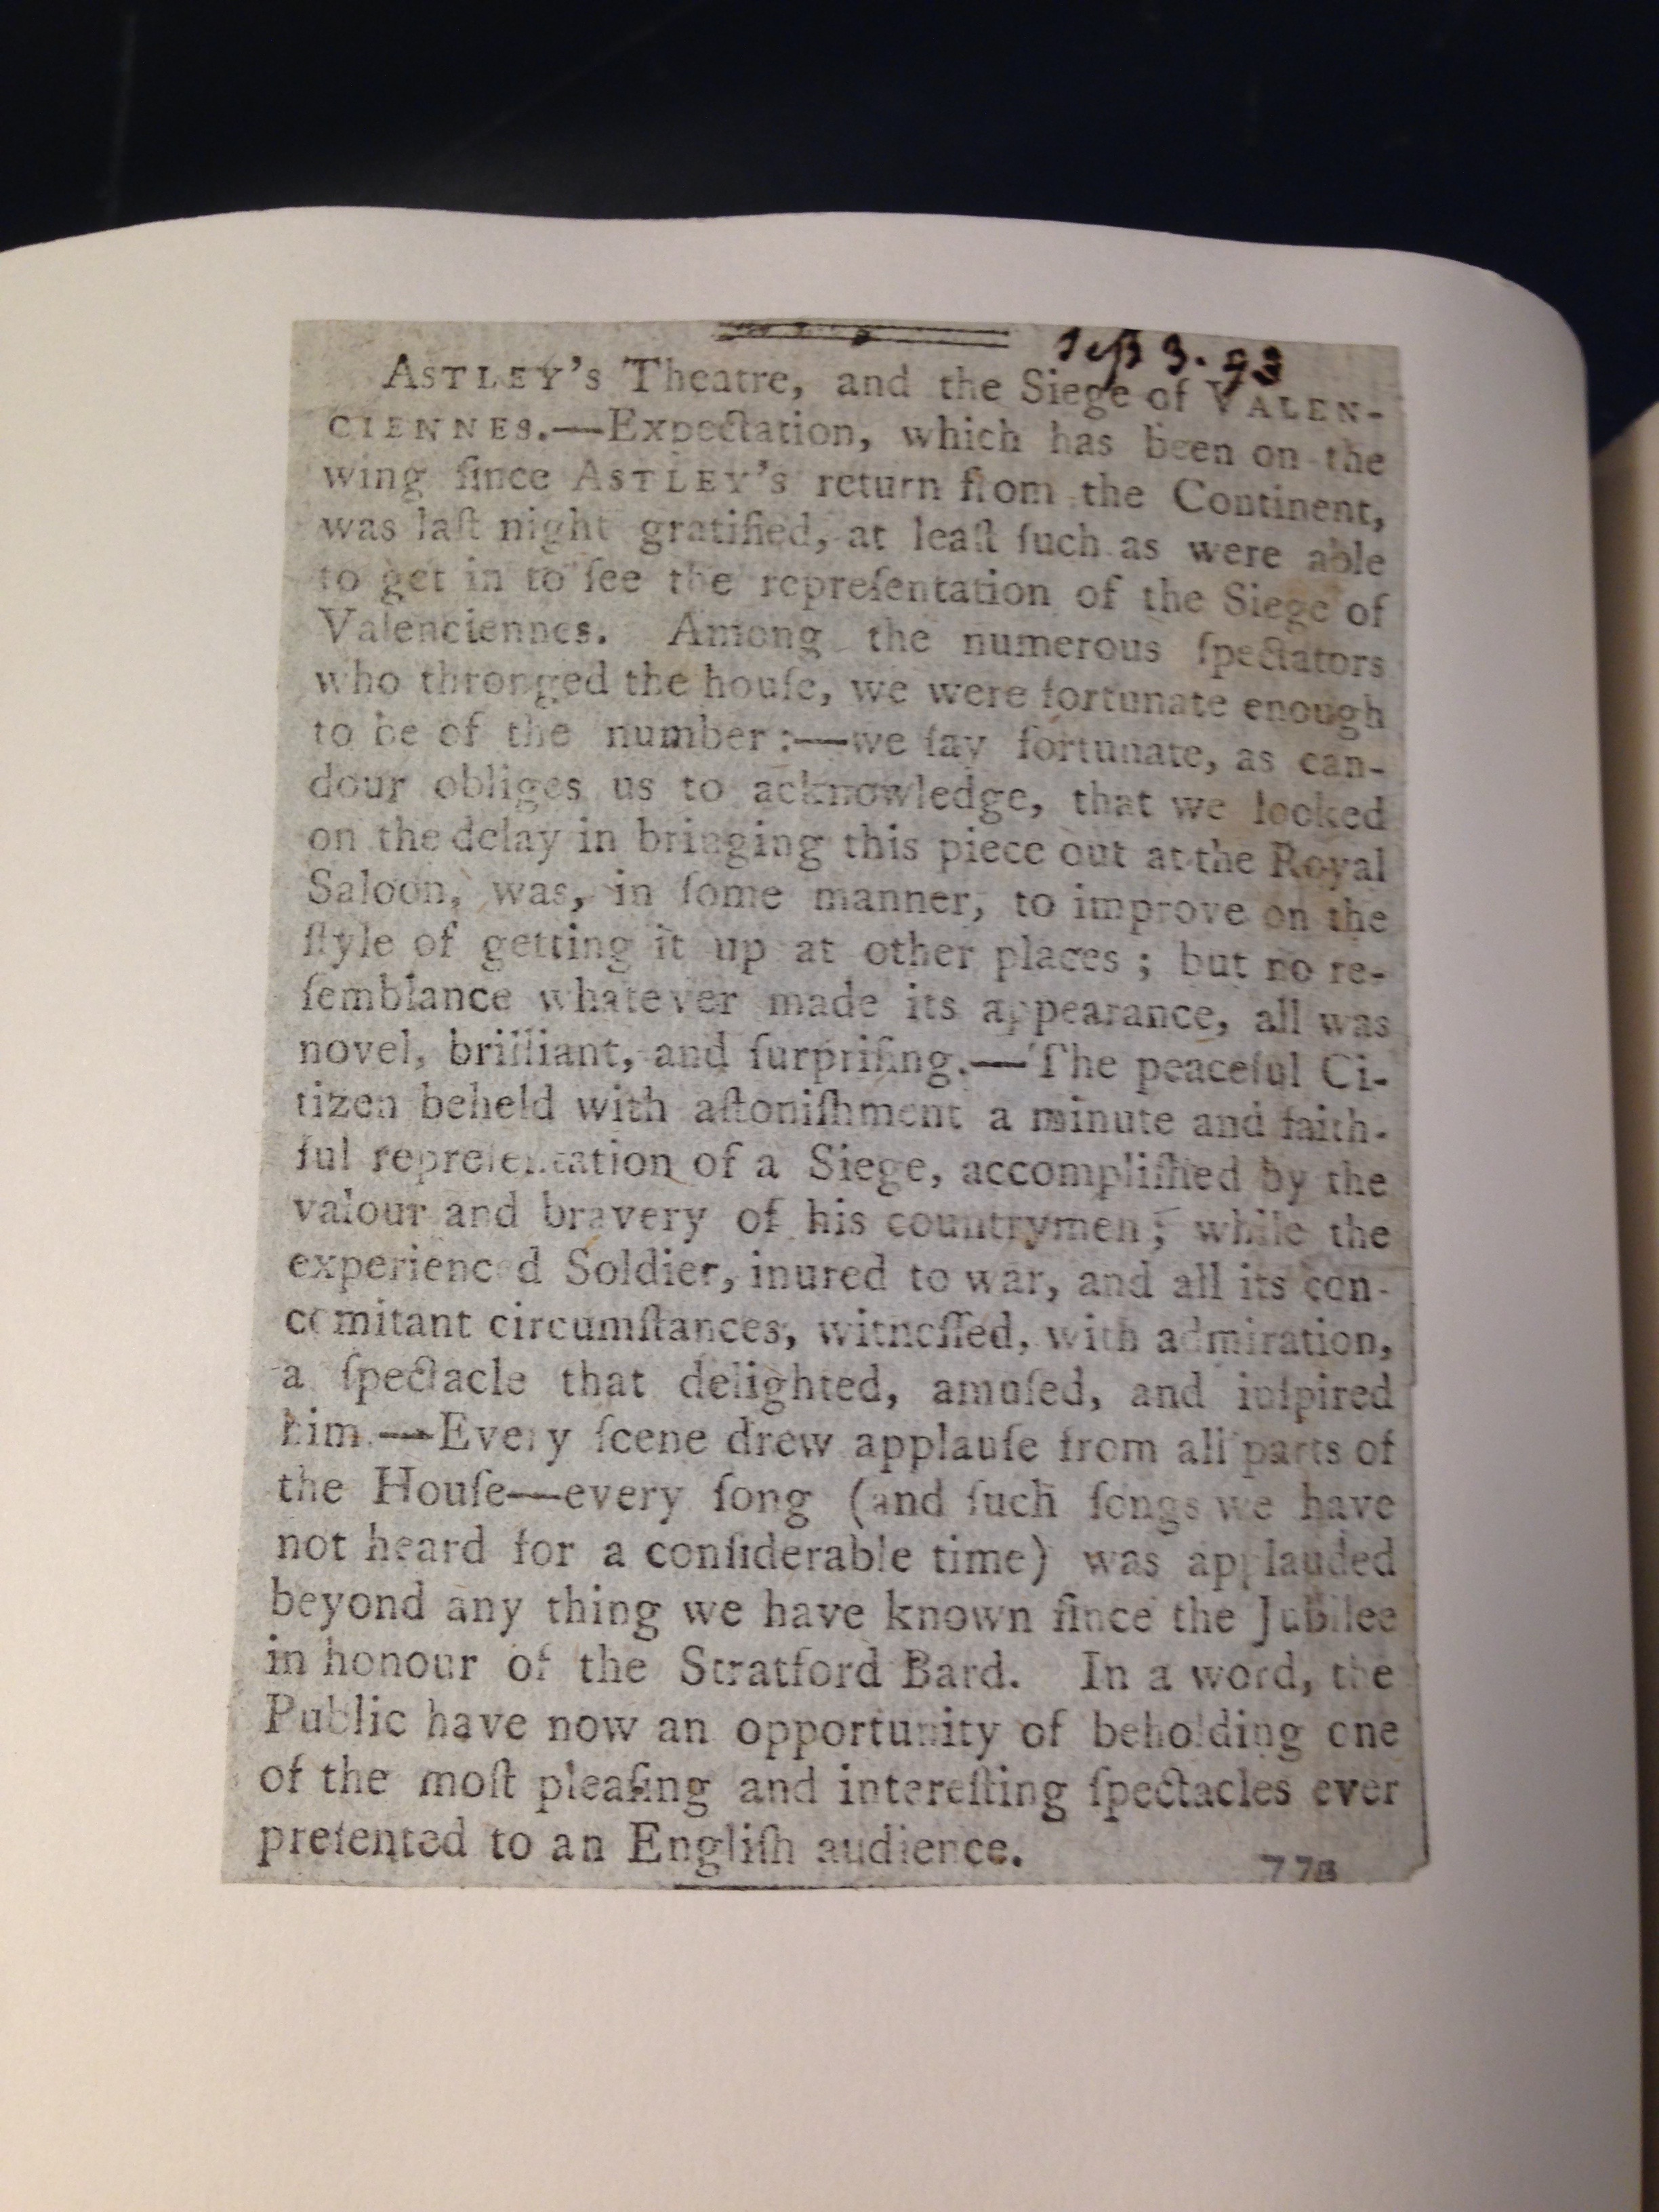 Sep 3. 93
ASTLEY'S Theatre, and the Siege of VALEN-
CIENNES.—Expectation, which has been on the
wing ſince ASTLEY'S return from the Continent,
was laſt night gratified, at leaſt ſuch as were able
to get in to ſee the repreſentation of the Siege of
Valenciennes. Among the numerous ſpectators
who thronged the houſe, we were fortunate enough
to be of the number:—we ſay fortunate, as can-
dour obliges us to acknowledge, that we looked
on the delay in bringing this piece out at the Royal
Saloon, was, in ſome manner, to improve on the
ſtyle of getting it up at other places; but no re-
ſemblance whatever made its appearance, all was
novel, brilliant, and ſurpriſing.—The peaceful Ci-
tizen beheld with aſtoniſhment a minute and faith-
ful repreſentation of a Siege, accompliſhed by the
valour and bravery of his countrymen; while the
experienced Soldier, inured to war, and all its con-
comitant circumſtances, witneſſed, with admiration,
a ſpectacle that delighted, amuſed, and inſpired
him.—Every ſcene drew applauſe from all parts of
the Houſe—every ſong (and ſuch ſongs we have
not heard for a conſiderable time) was applauded
beyond any thing we have known ſince the Jubilee
in honour of the Stratford Bard. In a word, the
Public have now an opportunity of beholding one
of the moſt pleaſing and intereſting ſpectacles ever
preſented to an Engliſh audience.